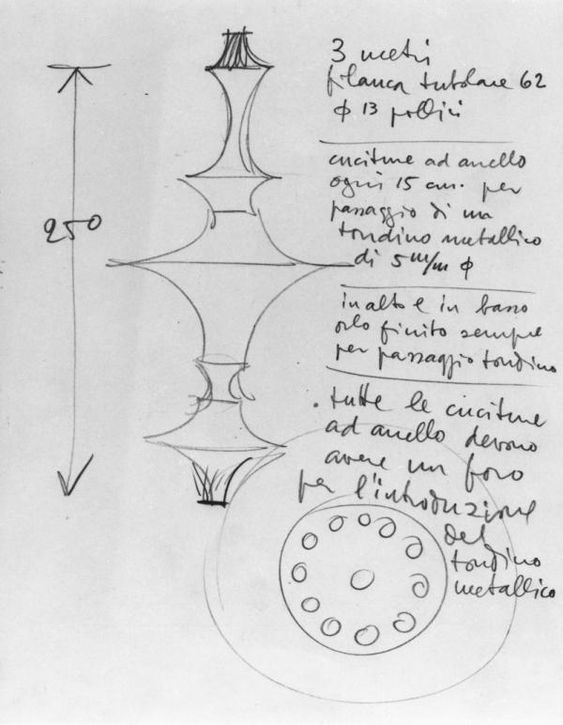 3 metri
filanca tubolare 62
φ 13 pollici
cuciture ad anello
ogni 15 cm. per
passaggio di un
tondino metallico
di 5 m/m φ
in alto e in basso
orlo finito sempre
per passaggio tondino
. tutte le cuciture
ad anello devono
avere un foro
per l'introduzione
del
tondino
metallico
250